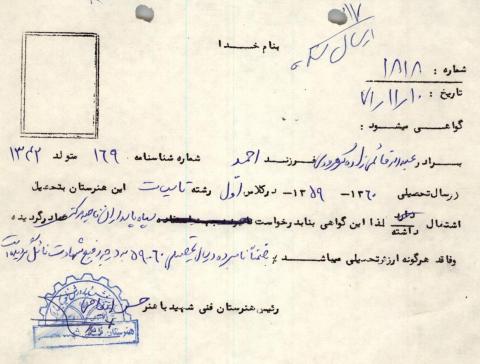 ارسال شد
بنام خدا
شماره : ۱۸۱۸
تاریخ : ۷۱/۱۱/۱۰
گواهی میشود :
برادر عبدالرضا قائمی زاده فرزند احمد شماره شناسنامه ۱۶۹ متولد ۱۳۴۲
در سال تحصیلی ۱۳۶۰ - ۱۳۵۹ در کلاس اول رشته تاسیسات این هنرستان بتحصیل
اشتغال داشته لذا این گواهی بنابدرخواست سپاه پاسداران صادر گردیده
و فاقد هرگونه ارزش تحصیلی میباشد ضمناً نامبرده در سال تحصیلی ۶۰-۵۹ به درجه رفیع شهادت نائل گردیده است
رئیس هنرستان فنی شهید با هنر